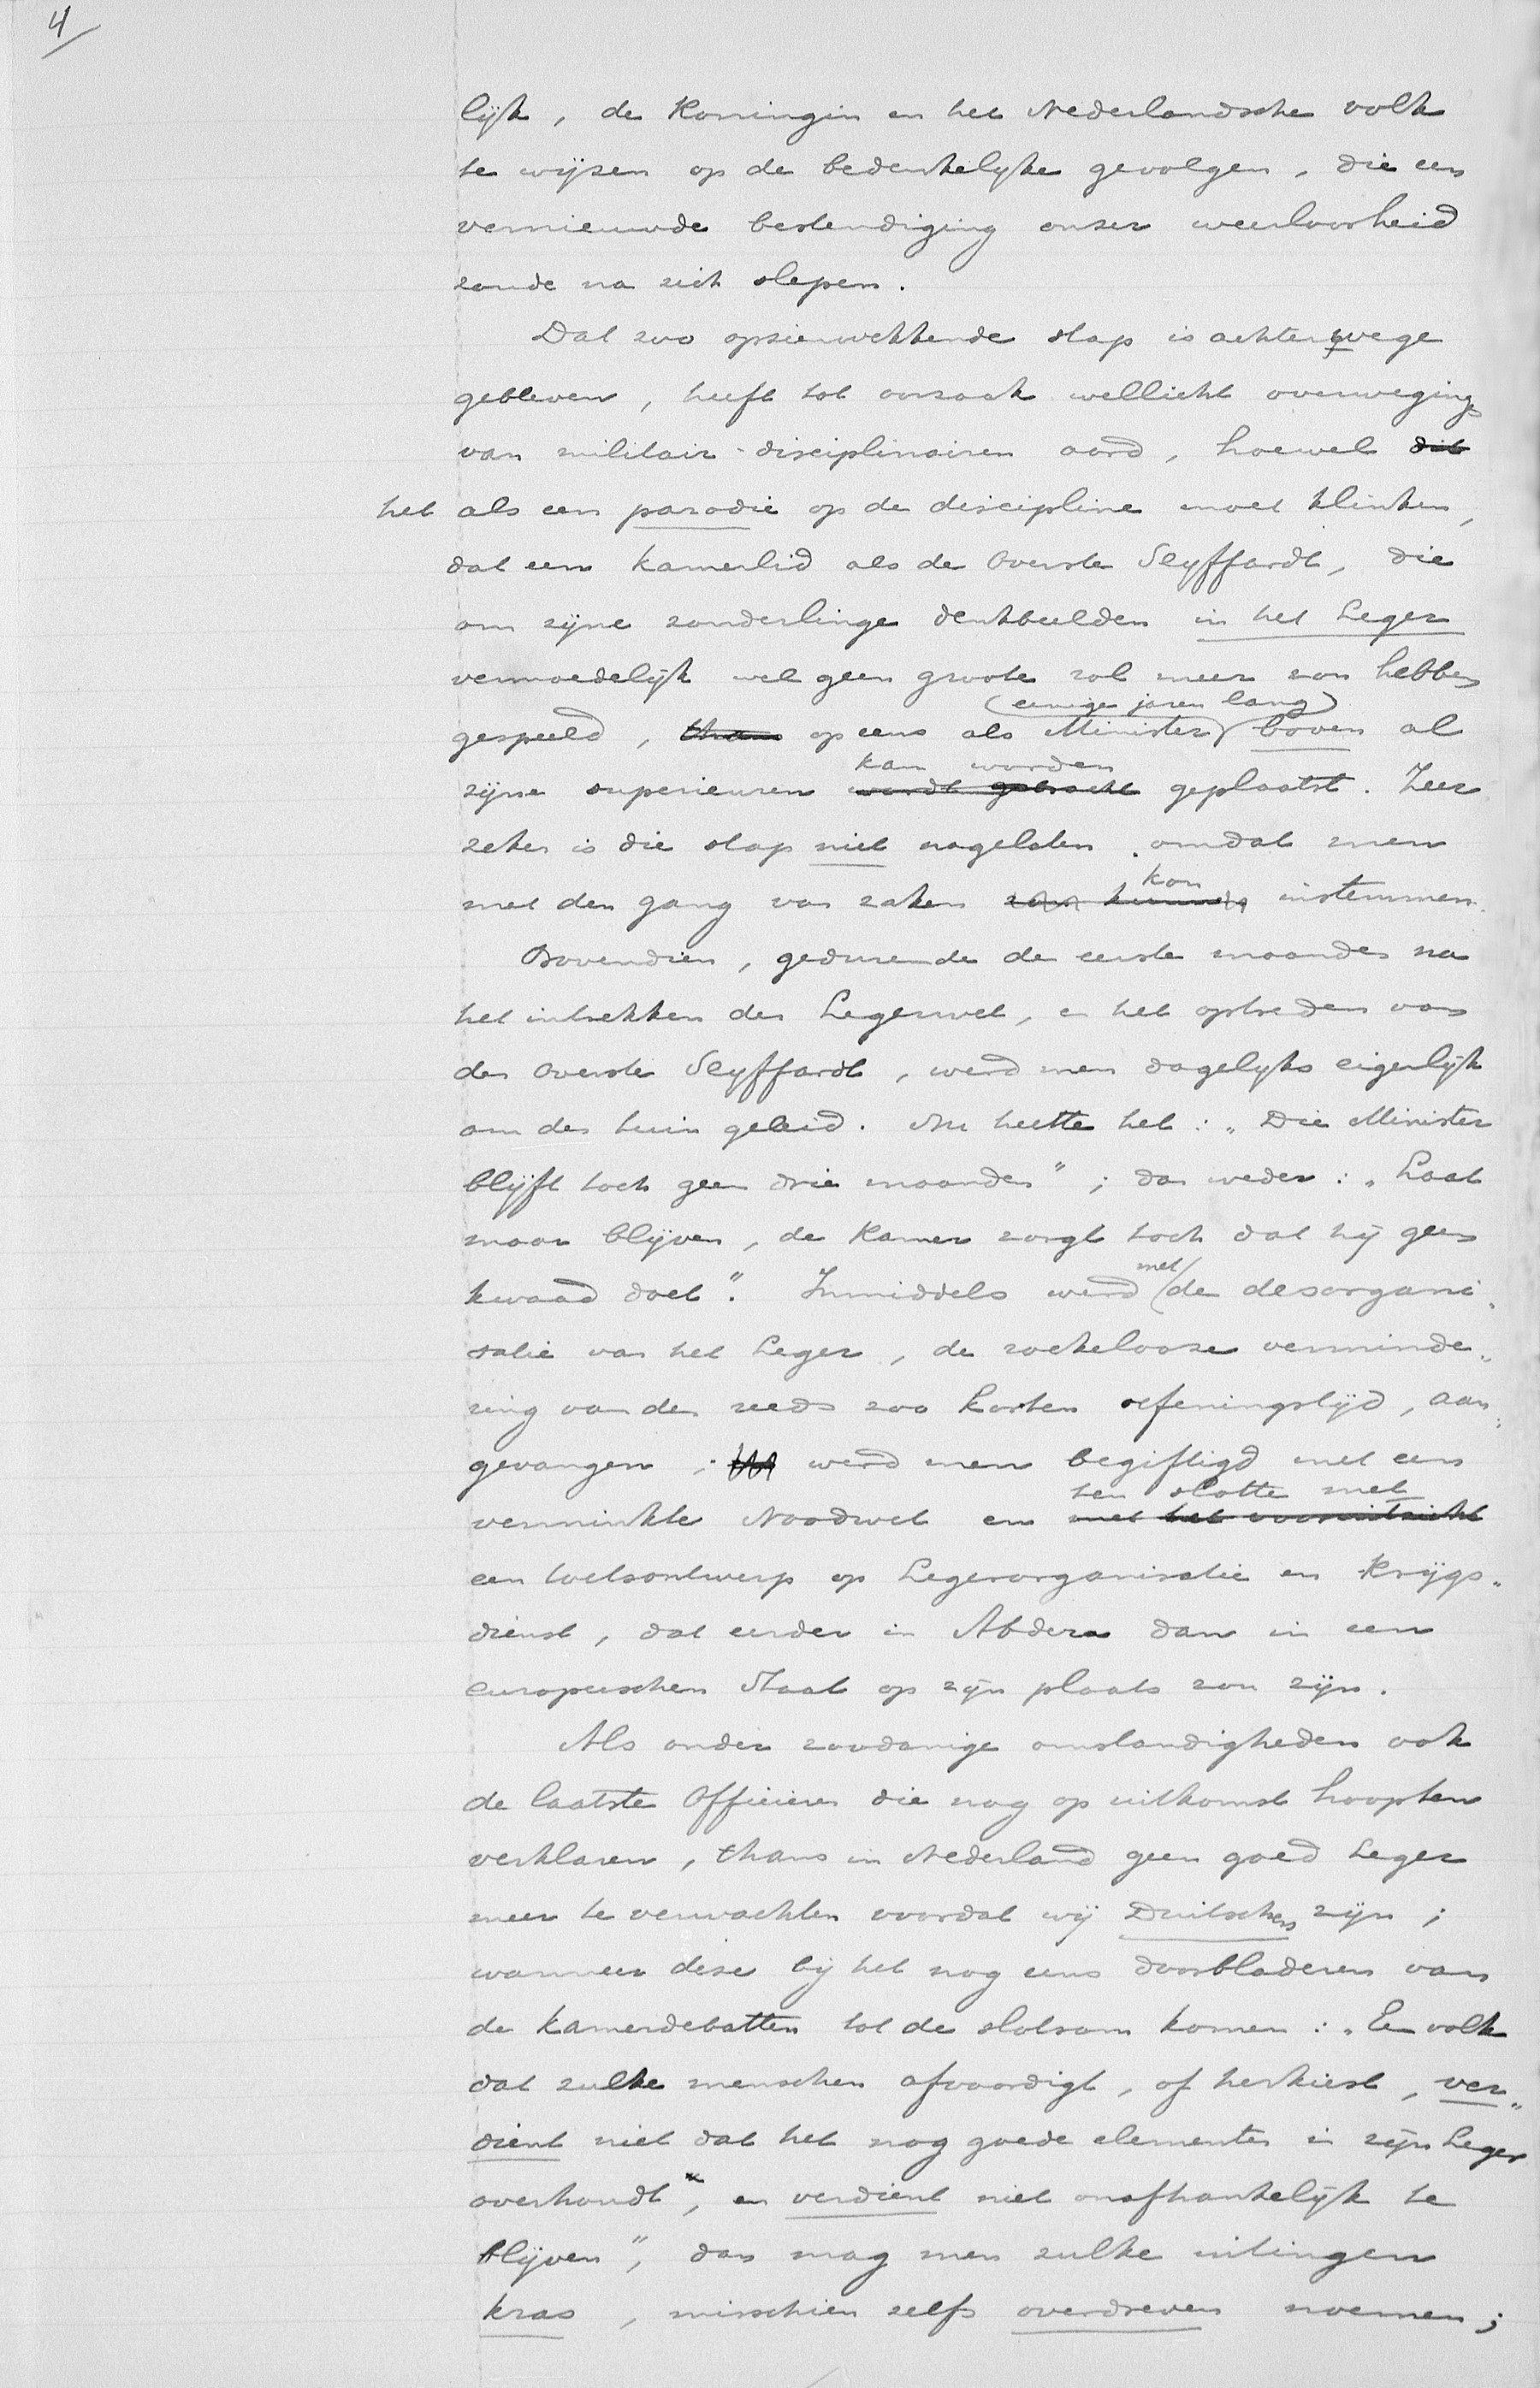 4
lijk, de Koningin en het Nederlandsche volk
te wijzen op de bedenkelijke gevolgen, die een
vernieuwde bestendiging onzer weerloosheid
zoude na zich slepen.
Dat zoo opzienwekkende stap is achterwege
gebleven, heeft tot oorzaak wellicht overwegings
van militair-disciplinairen aard, hoewel dit
het als een parodie op de discipline moet klinken,
dat een Kamerlid als de Overste Seyffardt, die
om zijne zonderlinge denkbeelden in het Leger
vermoedelijk wel geen groote rol meer zou hebben
(eenige jaren lang)
gespeeld, thans opeens als Minister boven al
kan worden
zijne superieuren wordt gebracht geplaatst. Zeer
zeker is die stap niet nagelaten, omdat men
kon
met den gang van zaken zou kunnen instemmen.
Bovendien, gedurende de eerste maanden na
het intrekken der Legerwet, en het optreden van
den Overste Seyffardt, werd men dagelijks eigenlijk
om den tuin geleid. Nu heette het: "Die Minister
blijft toch geen drie maanden"; dan weder: "Laat
maar blijven, de Kamer zorgt toch dat hij geen
met
kwaad doet". Inmiddels werd de desorgani-
satie van het Leger, de roekelooze verminde„
ring van den reeds zoo korten oefeningstijd, aan„
gevangen; werd men begiftigd met een
ten slotte met
verminkte Noodwet en met het vooruitzicht
een wetsontwerp op Legerorganisatie en Krijgs„
dienst, dat eerder in Abdera dan in een
europeeschen Staat op zijn plaats zou zijn.
Als onder zoodanige omstandigheden ook
de laatste Officieren die nog op uitkomst hoopten
verklaren, thans in Nederland geen goed Leger
meer te verwachten voordat wij Duitschers zijn;
wanneer deze bij het nog eens doorbladeren van
de Kamerdebatten tot de slotsom komen: "Een volk
dat zulke menschen afvaardigt, of herkiest, ver„
dient niet dat het nog goede elementen in zijn Leger
overhoudt", en verdient niet onafhankelijk te
blijven", dan mag men zulke uitingen
kras, misschien zelfs overdreven noemen;